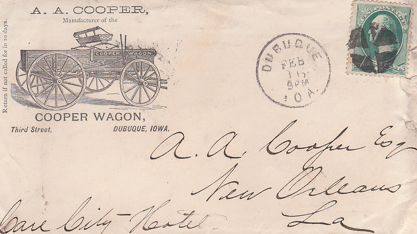 A. A. COOPER,
Manufacturer of the
Return if not called for in 10 days.
COOPER WAGON
COOPER WAGON,
Third Street, DUBUQUE, IOWA.
DUBUQUE
FEB
9PM
IOA
A. A. Cooper Esq
New Orleans
La
Care City Hotel